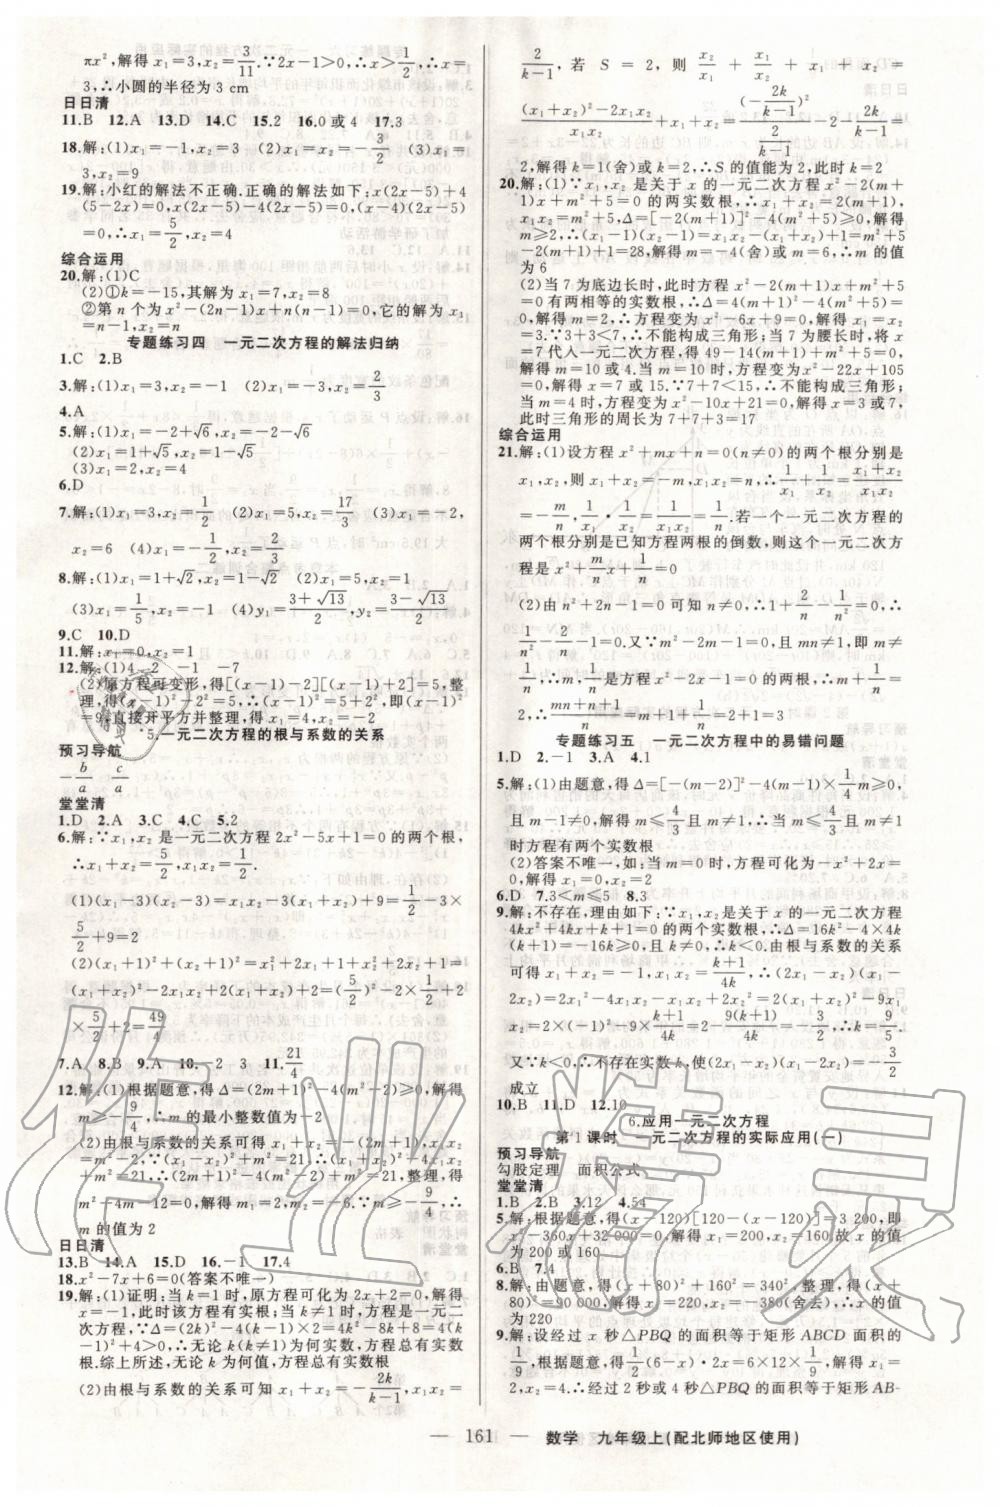 πx²,解得 x₁=3,x₂=3/11.∵2x-1>0,∴x>1/2,∴x=
3,∴小圆的半径为 3 cm
日日清
11.B 12.A 13.D 14.C 15.2 16.0或4 17.3
18.解:(1)x₁=-1,x₂=3 (2)x₁=x₂=-3/2 (3)x₁=
3,x₂=9
19.解:小红的解法不正确.正确的解法如下:x(2x-5)+4
(5-2x)=0,x(2x-5)-4(2x-5)=0,(x-4)(2x-5)
=0,∴x₁=5/2,x₂=4
综合运用
20.解:(1)C
(2)①k=-15,其解为 x₁=7,x₂=8
②第 n 个为 x²-(2n-1)x+n(n-1)=0,它的解为 x₁
=n-1,x₂=n
专题练习四 一元二次方程的解法归纳
1.C 2.B
3.解:(1)x₁=3,x₂=-1 (2)x₁=-2/3,x₂=2/3
4.A
5.解:(1)x₁=-2+√6,x₂=-2-√6
(2)x₁=1+√5,x₂=1-√5
(3)x₁=-2,x₂=4
6.D
7.解:(1)x₁=3,x₂=1/2 (2)x₁=5,x₂=17/3 (3)x₁=-2,
x₂=6 (4)x₁=-1/2,x₂=0
8.解:(1)x₁=1+√2,x₂=1-√2 (2)x₁=-3,x₂=1
(3)x₁=1/5,x₂=-1 (4)y₁=(3+√13)/2,y₂=(3-√13)/2
9.C 10.D
11.解:x₁=0,x₂=1
12.解:(1)4 -2 -1 -7
(2)原方程可变形,得[(x-1)-2][(x-1)+2]=5,整
理,得(x-1)²-2²=5,∴(x-1)²=5+2²,即(x-1)²
=9,直接开平方并整理,得 x₁=4,x₂=-2
5.一元二次方程的根与系数的关系
预习导航
-b/a c/a
堂堂清
1.D 2.A 3.C 4.C 5.2
6.解:∵x₁,x₂ 是一元二次方程 2x²-5x+1=0 的两个根,
∴x₁+x₂=5/2,x₁x₂=1/2.
(1)(x₁-3)(x₂-3)=x₁x₂-3(x₁+x₂)+9=1/2-3×
5/2+9=2
(2)(x₁+1)²+(x₂+1)²=x₁²+2x₁+1+x₂²+2x₂+1=
(x₁+x₂)²-2x₁x₂+2(x₁+x₂)+2=(5/2)²-2×1/2+2
×5/2+2=49/4
7.A 8.B 9.A 10.-2 3 11.21/4
12.解:(1)根据题意,得Δ=(2m+1)²-4(m²-2)≥0,解得
m≥-9/4,∴m 的最小整数值为-2
(2)由根与系数的关系可得 x₁+x₂=-(2m+1),x₁x₂=
m²-2.∵(x₁-x₂)²+m²=21,∴(x₁+x₂)²-4x₁x₂+m²
=21,∴(2m+1)²-4(m²-2)+m²=21,整理,得
m²+4m-12=0,解得 m₁=2,m₂=-6.∵m≥-9/4,∴
m 的值为 2
日日清
13.B 14.A 15.D 16.-1 17.4
18.x²-7x+6=0(答案不唯一)
19.解:(1)证明:当 k=1 时,原方程可化为 2x+2=0,解得
x=-1,此时该方程有实根;当 k≠1 时,方程是一元二
次方程,∵Δ=(2k)²-4(k-1)×2=4k²-8k+8=4(k
-1)²+4>0,∴无论 k(k≠1)为何实数,方程总有实数
根.综上所述,无论 k 为何值,方程总有实数根
(2)由根与系数的关系可知 x₁+x₂=-2k/(k-1),x₁x₂=
2/(k-1),若 S=2,则 x₂/x₁+x₁/x₂+x₁+x₂=
((x₁+x₂)²-2x₁x₂)/(x₁x₂)+x₁+x₂=((-2k/(k-1))²)/(2/(k-1))-2-2k/(k-1)=
2,解得 k=1(舍)或 k=2,∴S 的值能为 2,此时 k=2
20.解:(1)∵x₁,x₂ 是关于 x 的一元二次方程 x²-2(m+
1)x+m²+5=0 的两实数根,∴x₁+x₂=2(m+1),
x₁x₂=m²+5,Δ=[-2(m+1)]²-4(m²+5)≥0,解得 m
≥2,∴(x₁-1)(x₂-1)=x₁x₂-(x₁+x₂)+1=m²+5
-2(m+1)+1=28,解得 m=-4(舍)或 m=6,∴m 的值
为 6
(2)当 7 为底边长时,此时方程 x²-2(m+1)x+m²+5
=0 有两个相等的实数根,∴Δ=4(m+1)²-4(m²+5)=
0,解得 m=2,∴方程变为 x²-6x+9=0,解得 x₁=x₂
=3.∵3+3<7,∴不能构成三角形;当 7 为腰长时,将 x
=7 代入一元二次方程,得 49-14(m+1)+m²+5=0,
解得 m=10 或 4.当 m=10 时,方程变为 x²-22x+105
=0,解得 x=7 或 15.∵7+7<15,∴不能构成三角形;
当 m=4 时,方程变为 x²-10x+21=0,解得 x=3 或 7,
此时三角形的周长为 7+7+3=17
综合运用
21.解:(1)设方程 x²+mx+n=0(n≠0)的两个根分别是
x₁,x₂,则 x₁+x₂=-m,x₁x₂=n,∴1/x₁+1/x₂=(x₁+x₂)/(x₁x₂)=
-m/n,1/x₁·1/x₂=1/(x₁x₂)=1/n.若一个一元二次方程的
两个根分别是已知方程两根的倒数,则这个一元二次方
程是 x²+m/n x+1/n=0
(2)由 n²+2n-1=0 可知 n≠0,∴1+2/n-1/n²=0,
∴1/n²-2/n-1=0.又∵m²-2m-1=0,且 mn≠1,即 m≠
1/n,∴m,1/n是方程 x²-2x-1=0 的两根,∴m+1/n=
2,∴(mn+n+1)/n=m+1+1/n=2+1=3
专题练习五 一元二次方程中的易错问题
1.D 2.-1 3.A 4.1
5.解:(1)由题意,得Δ=[-(m-2)]²-4(m-1)×1/4 m≥0,
且 m-1≠0,解得 m≤4/3且 m≠1,∴当 m≤4/3且 m≠1
时方程有两个实数根
(2)答案不唯一,如:当 m=0 时,方程可化为-x²+2x=
0,解得 x₁=0,x₂=2
6.D 7.3<m≤5 8.3
9.解:不存在,理由如下:∵x₁,x₂ 是关于 x 的一元二次方程
4kx²+4kx+k+1=0 的两个实数根,∴Δ=16k²-4×4k
(k+1)=-16k≥0,且 k≠0,∴k<0.由根与系数的关系
可得 x₁+x₂=-1,x₁x₂=(k+1)/4k,∴(2x₁-x₂)(x₁-
2x₂)=2x₁²-4x₁x₂-x₁x₂+2x₂²=2(x₁+x₂)²-9x₁
x₂=2×(-1)²-9×(k+1)/4k=2-9(k+1)/4k=
又∵k<0,∴不存在实数 k,使(2x₁-x₂)(x₁-2x₂)=
成立
10.B 11.D 12.10
6.应用一元二次方程
第1课时 一元二次方程的实际应用(一)
预习导航
勾股定理 面积公式
堂堂清
1.B 2.B 3.12 4.54
5.解:根据题意,得(x-120)[120-(x-120)]=3 200,即
x²-360x+32 000=0,解得 x₁=200,x₂=160,故 x 的值
为 200 或 160
6.B 7.4
8.解:由题意,得(x+80)²+160²=340²,整理,得(x+
80)²=90 000,解得 x₁=220,x₂=-380(舍去),∴x 的值
为220
9.解:设经过 x 秒△PBQ 的面积等于矩形 ABCD 面积的
1/9,根据题意,得1/2(6-x)·2x=6×12×1/9,解得 x₁=
2,x₂=4.∴经过 2 秒或 4 秒△PBQ 的面积等于矩形 AB-
— 161 — 数学 九年级上(配北师地区使用)
作业精灵